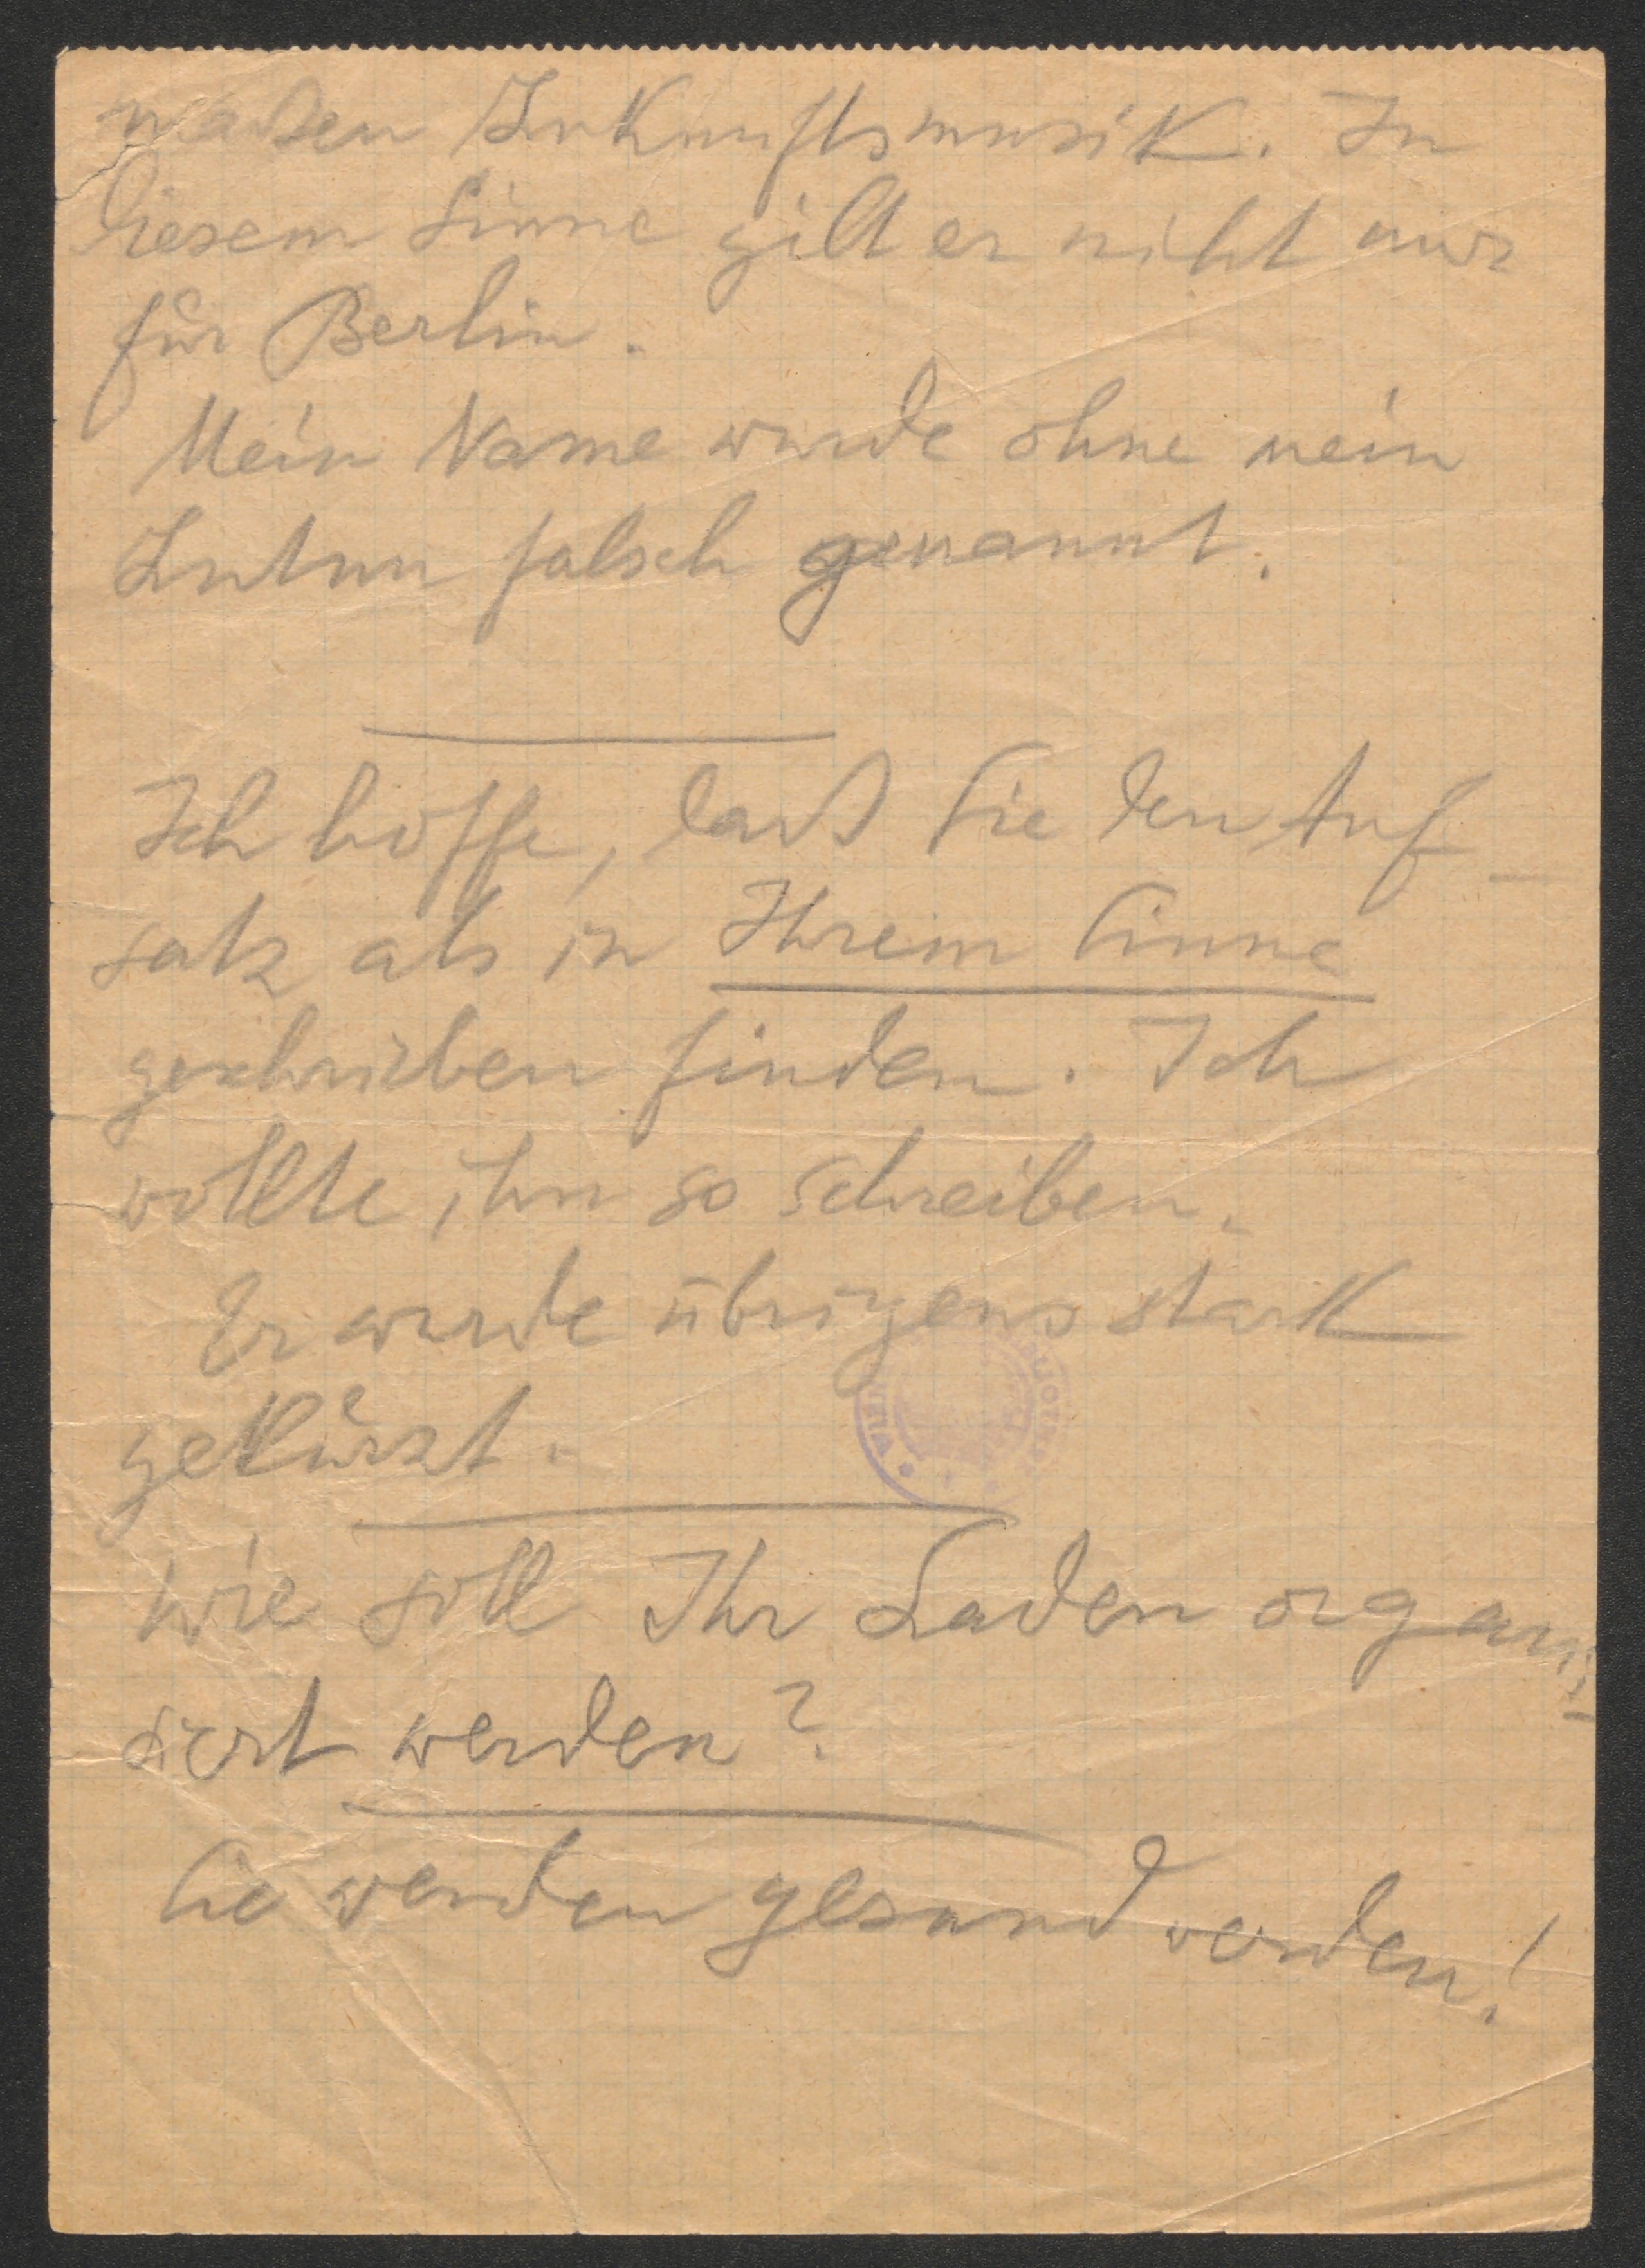 machen Zukunftsmusik. In
diesem Sinne gilt er nicht nur
für Berlin.
Mein Name wurde ohne mein
Zutun falsch genannt.
Ich hoffe, daß Sie den Auf-
satz als in Ihrem Sinne
geschrieben finden. Ich
wollte ihn so schreiben.
Er wurde übrigens stark
gekürzt.
Wie soll Ihr Laden organi-
siert werden?
Sie werden gesund werden!